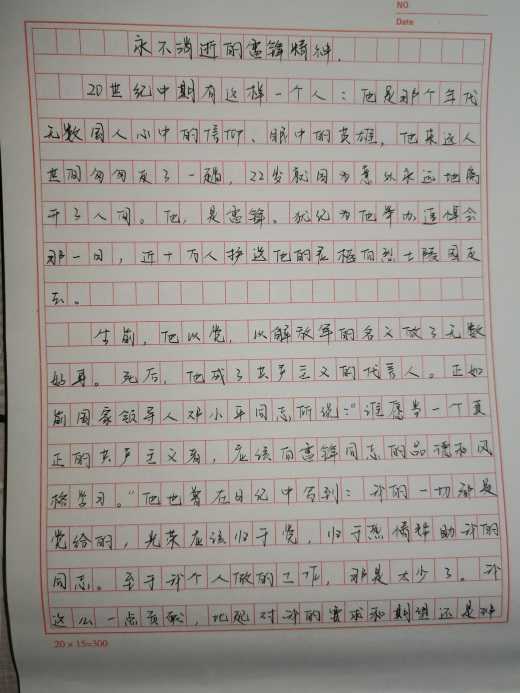 NO
Date
永不消逝的雷锋精神.
20世纪中期有这样一个人：他是那个年代
无数国人心中的信仰、眼中的英雄，他来这人
世间匆匆度了一趟，22岁就因为意外永远地离
开了人间。他，是雷锋。犹记为他举办追悼会
那一日，近十万人护送他的灵柩向烈士陵园走
去。
生前，他以党，以解放军的名义做了无数
好事。死后，他成了共产主义的代言人。正如
前国家领导人邓小平同志所说："谁愿当一个真
正的共产主义者，应该向雷锋同志的品德和风
格学习。"他也曾在日记中写到：我的一切都是
党给的，光荣应该归于党，归于热情帮助我的
同志。至于我个人做的工作，那是太少了。我
这么一点贡献，比起对我的要求和期望还是
20×15=300